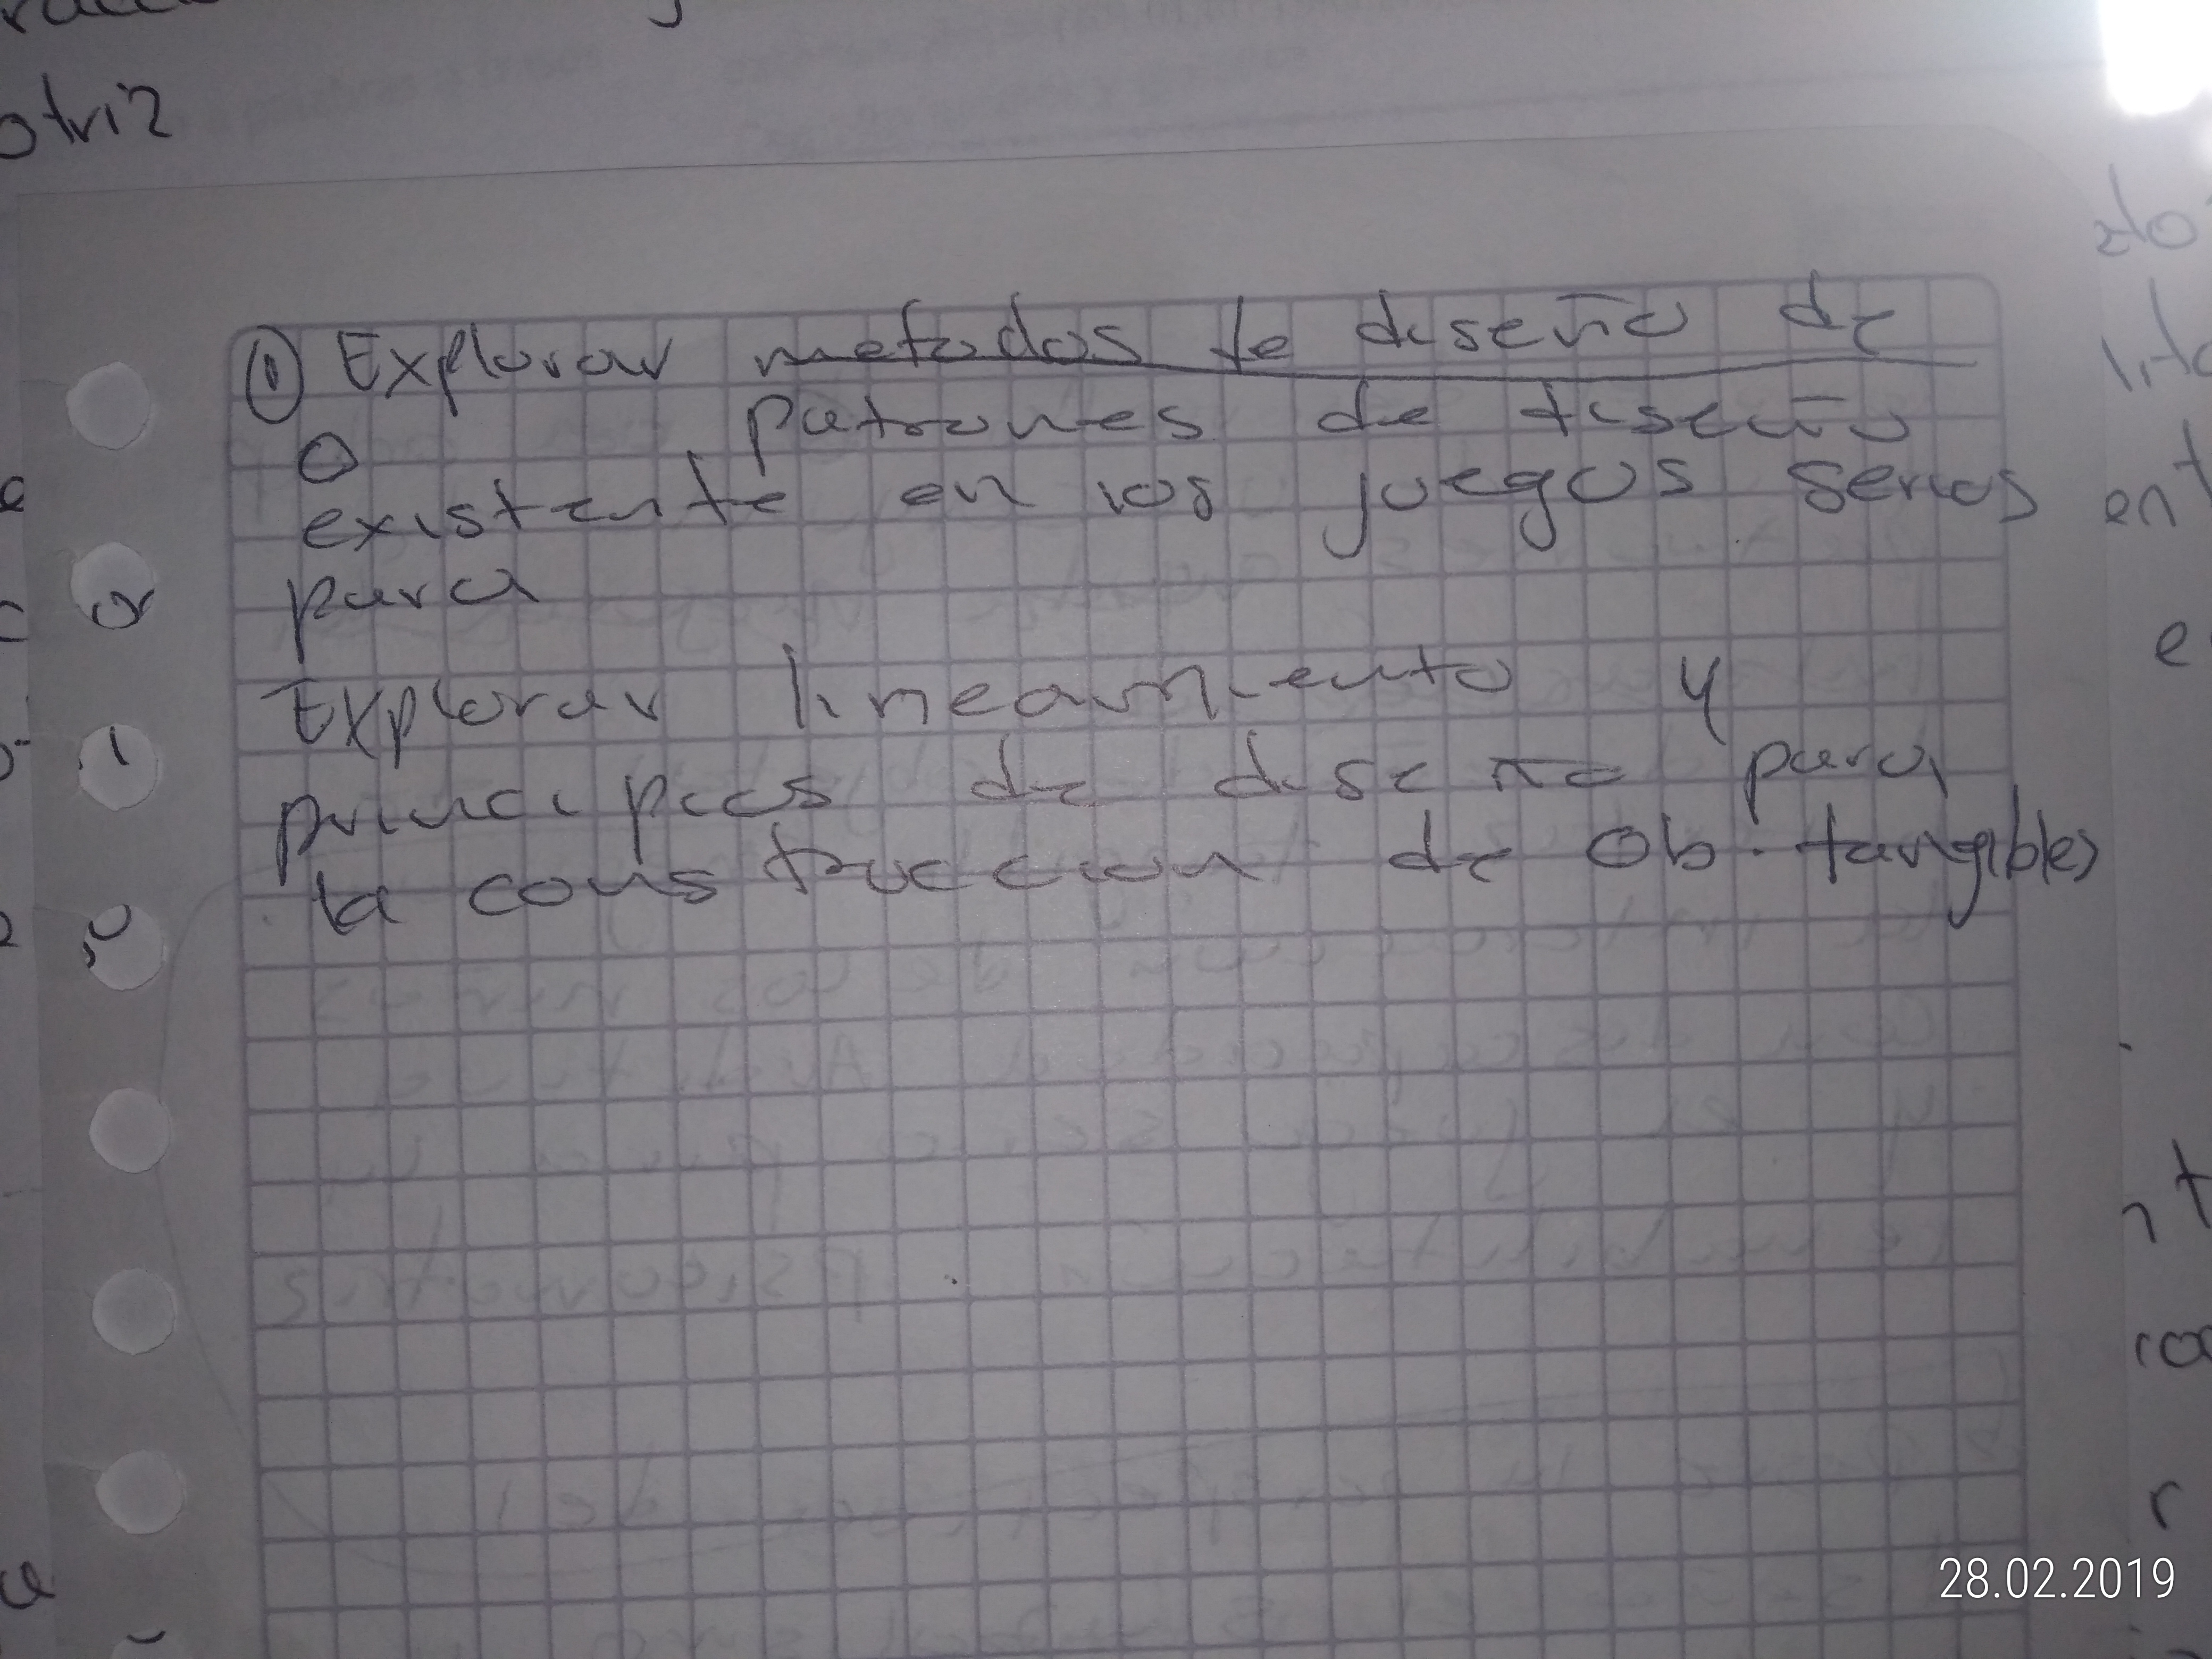 otriz
① Explorar metodos de diseño de
o patrones de diseño
existente en los juegos serios
para
Explorar lineamiento y
principios de diseño para
la construccion de Ob. tangibles
28.02.2019